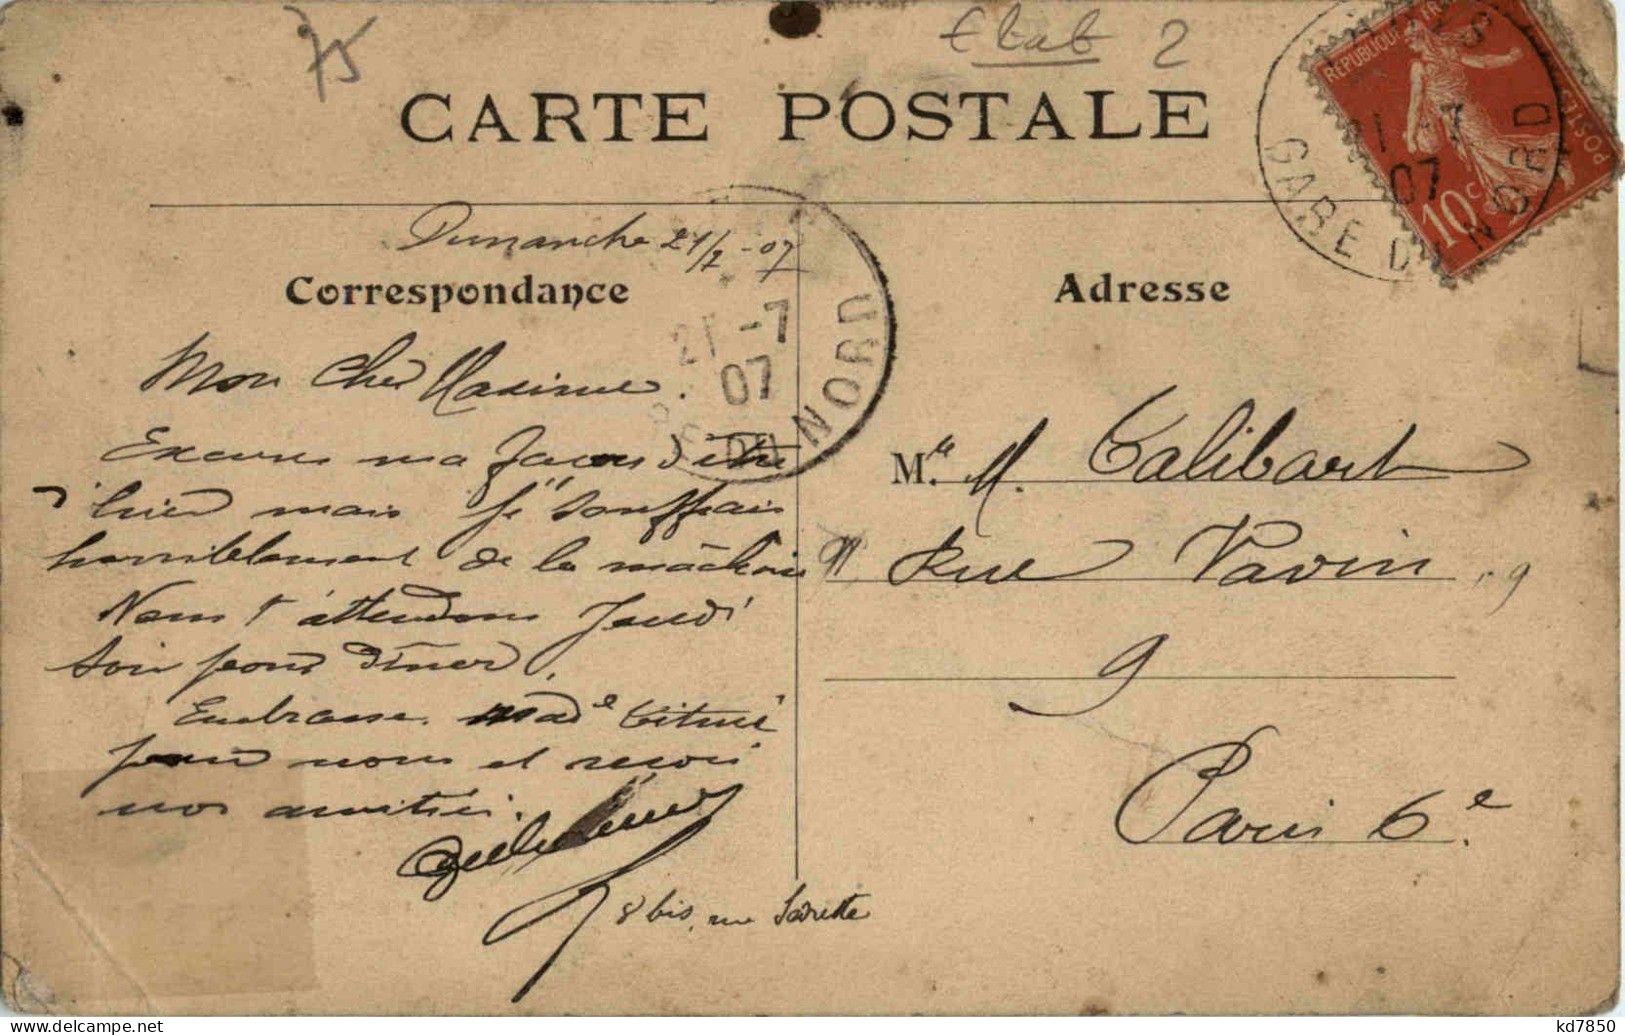 75
Etab 2
CARTE POSTALE
RÉPUBLIQUE FRANÇAISE
POSTES
10c
21 -7
07
GARE DU NORD
Dimanche 21/7-07
Correspondance
Adresse
21 -7
07
GARE DU NORD
Mon Cher Maxime.
Excuses ma façon d'être
hier mais je souffrais
horriblement de la mâchoire
Nous t'attendons Jeudi
soir pour dîner.
Embrasse Made
pour nous et reçois
nos amitiés.
8 bis, rue Sarrette
M. M. Calibart
9 Rue Vavin, 9
9
Paris 6e.
kd7850